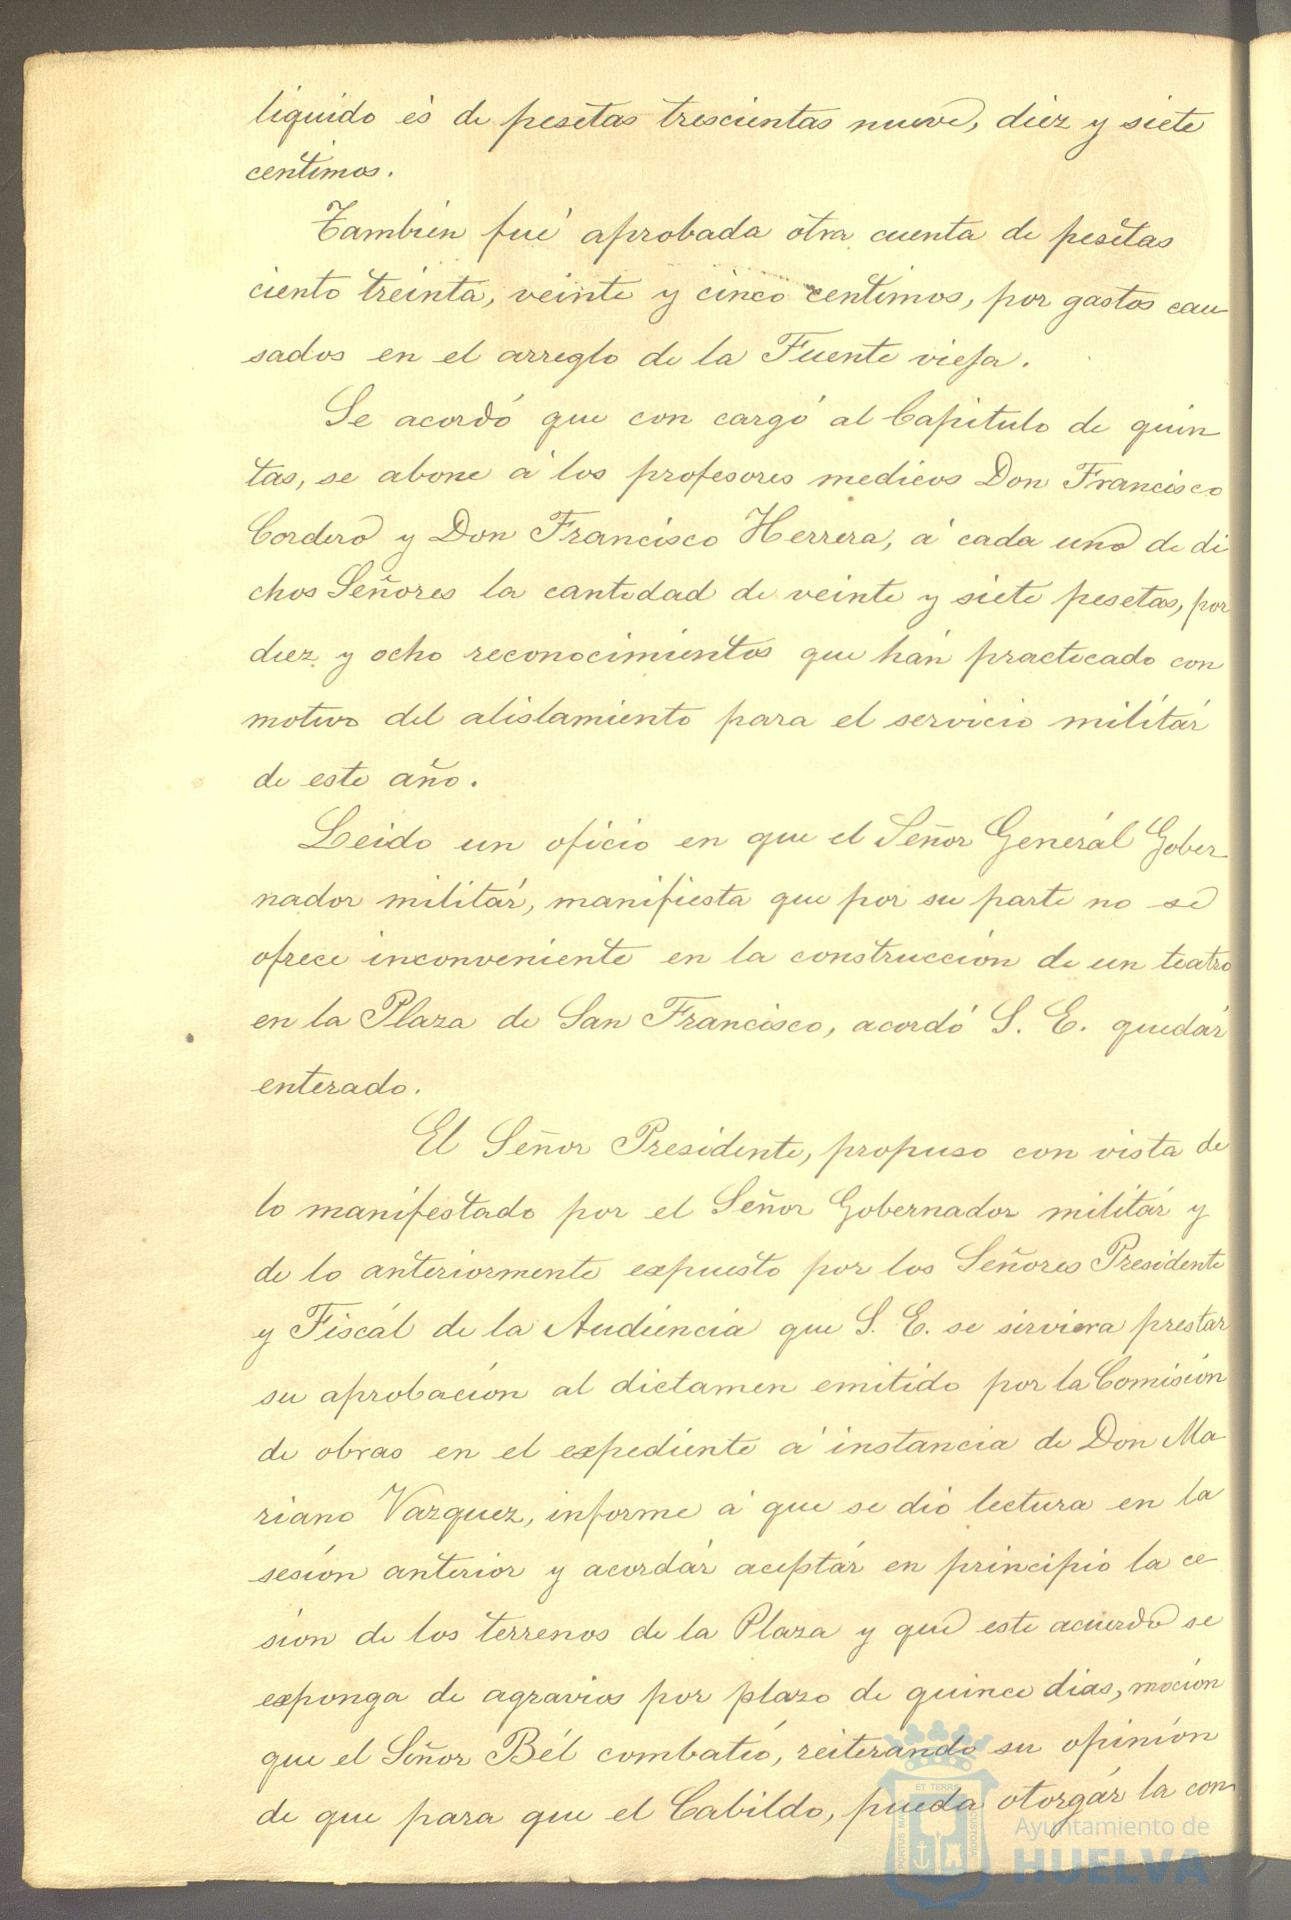 liquido és de pesetas trescientas nueve, diez y siete
centimos.
Tambien fué aprobada otra cuenta de pesetas
ciento treinta, veinte y cinco centimos, por gastos cau-
sados en el arreglo de la Fuente vieja.
Se acordó que con cargó al Capitulo de quin
tas, se abone á los profesores medicos Don Francisco
Cordero y Don Francisco Herrera, á cada uno de di
chos Señores la cantidad de veinte y siete pesetas, por
diez y ocho reconocimientos que hán practicado con
motivo del alistamiento para el servicio militár
de este año.
Leido un oficio en que el Señor Generál Gober-
nador militár, manifiesta que por su parte no se
ofrece inconveniente en la construcción de un teatro
en la Plaza de San Francisco, acordó S. E. quedár
enterado.
El Señor Presidente, propuso con vista de
lo manifestado por el Señor Gobernador militár y
de lo anteriormente expuesto por los Señores Presidente
y Fiscál de la Audiencia que S. E. se sirviera prestar
su aprobación al dictamen emitido por la Comisión
de obras en el expediente á instancia de Don Ma-
riano Vazquez, informe á que se dió lectura en la
sesión anterior y acordár aceptár en principio la ce-
sion de los terrenos de la Plaza y que este acuerdo se
exponga de agravios por plazo de quince dias, moción
que el Señor Bél combatió, reiterando su opinión
de que para que el Cabildo, pueda otorgár la con-
PORTUS MARIS ET TERRE CUSTODIA
Ayuntamiento de
HUELVA